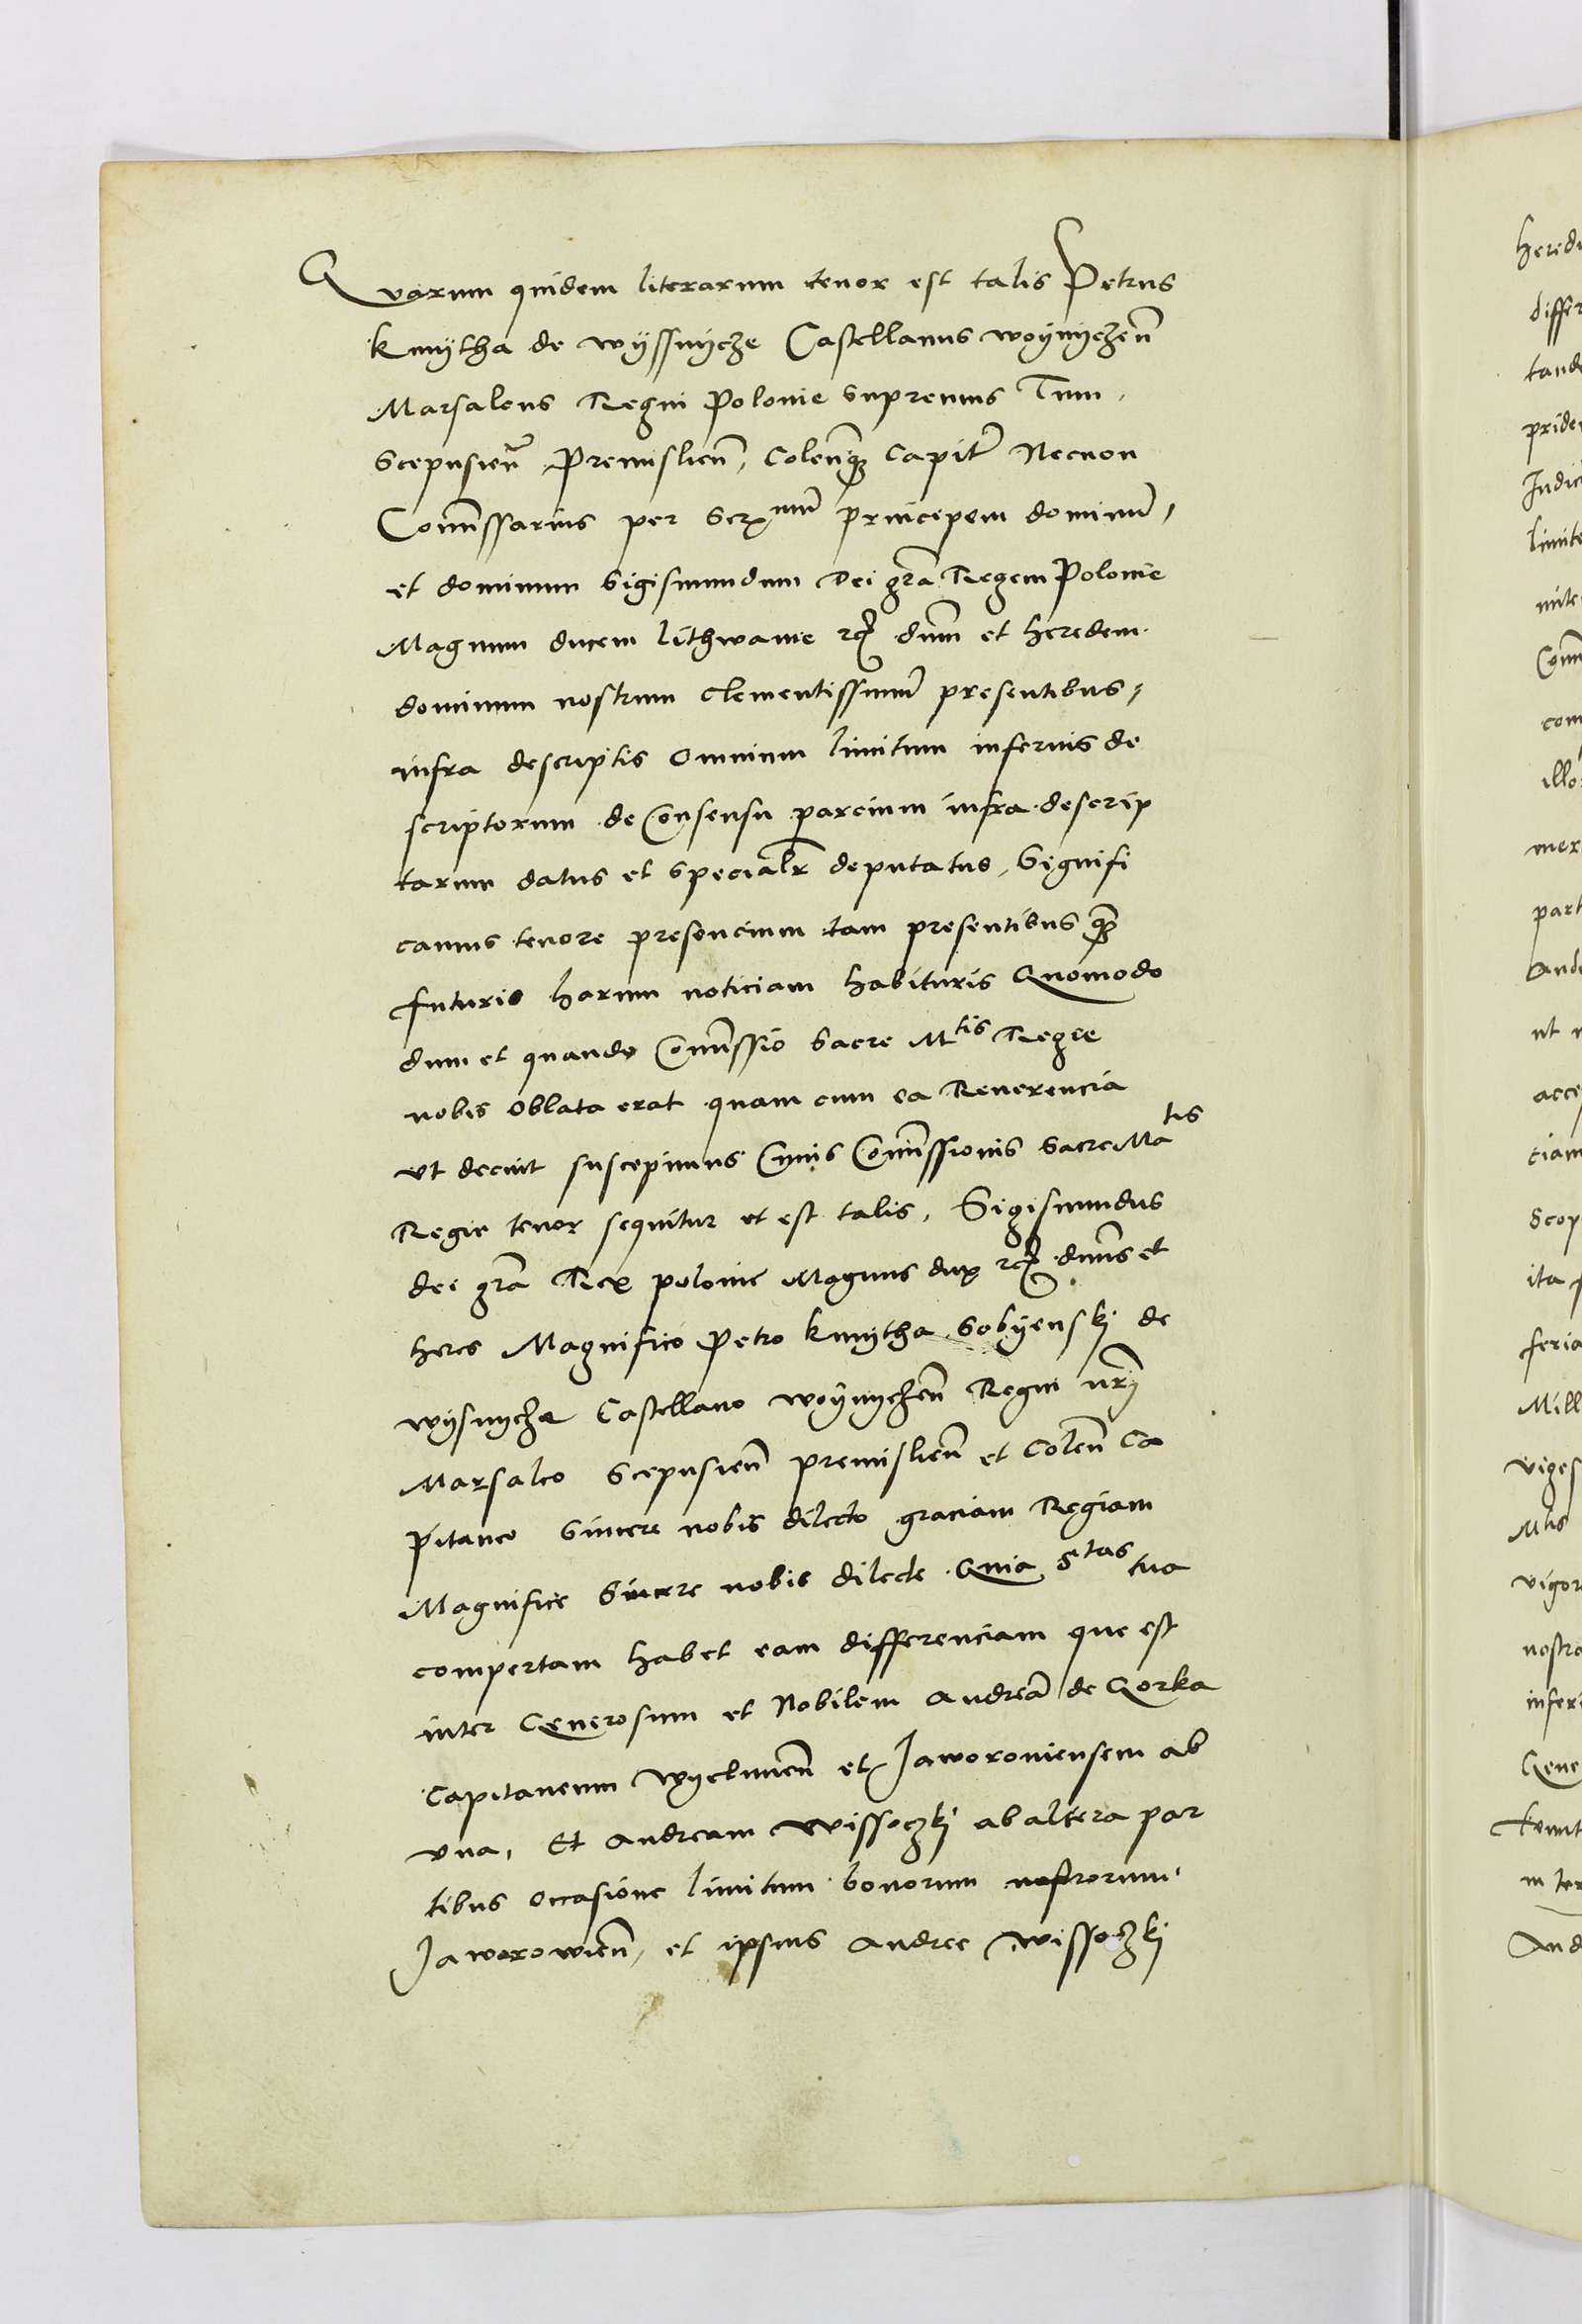 Quarum quidem literarum tenor est talis Petrus
kmÿtha de wÿssnÿcze Castellanus woÿnÿczeñ
Marsalcus Regni Polonie supremus Tum,
Scepusieñ, Premislieñ, Coleñq3 Capit Necnon
Com̄issarius per Serᵐᵘᵐ principem dominū,
et dominum Sigismundum Dei gr̄a Regem Polonie
Magnum ducem lithwanie dn̄m et heredem
dominum nostrum clementissimū presentibus,
infra descriptis omnium limitum inferius de
scriptorum de Consensu parcium infra descrip
tarum datus et specialr̄ deputatus, Signifi
camus tenore presencium tam presentibus q̄
futuris harum noticiam habituris Quomodo
dum et quando Com̄issio Sacre Mᵗⁱˢ Regie
nobis oblata erat quam cum ea Reuerencia
vt decuit suscepimus Cuius Com̄issionis Sacre Maᵗⁱˢ
Regie tenor sequitur et est talis, Sigismundus
dei gr̄a Rex polonie Magnus dux dn̄s et
heres Magnifico Petro kmitha Sobÿenskj de
wÿsnÿcze Castellano woÿnÿcheñ Regni nr̄j
Marsalco Scepusieñ premislieñ et Coleñ Ca
pitaneo Sincere nobis dilecto graciam Regiam
Magnifice Sincere nobis dilecte. Quia Sᵗᵃˢ tua
compertam habet eam differenciam que est
inter Generosum et Nobilem Andreā de Gorka
Capitaneum wÿelunieñ et Jaworouiensem ab
vna, Et Andream wissoczkj ab altera par
tibus occasione limitum bonorum nostrorum
Jaworowieñ, et ipsius Andree wissoczkj